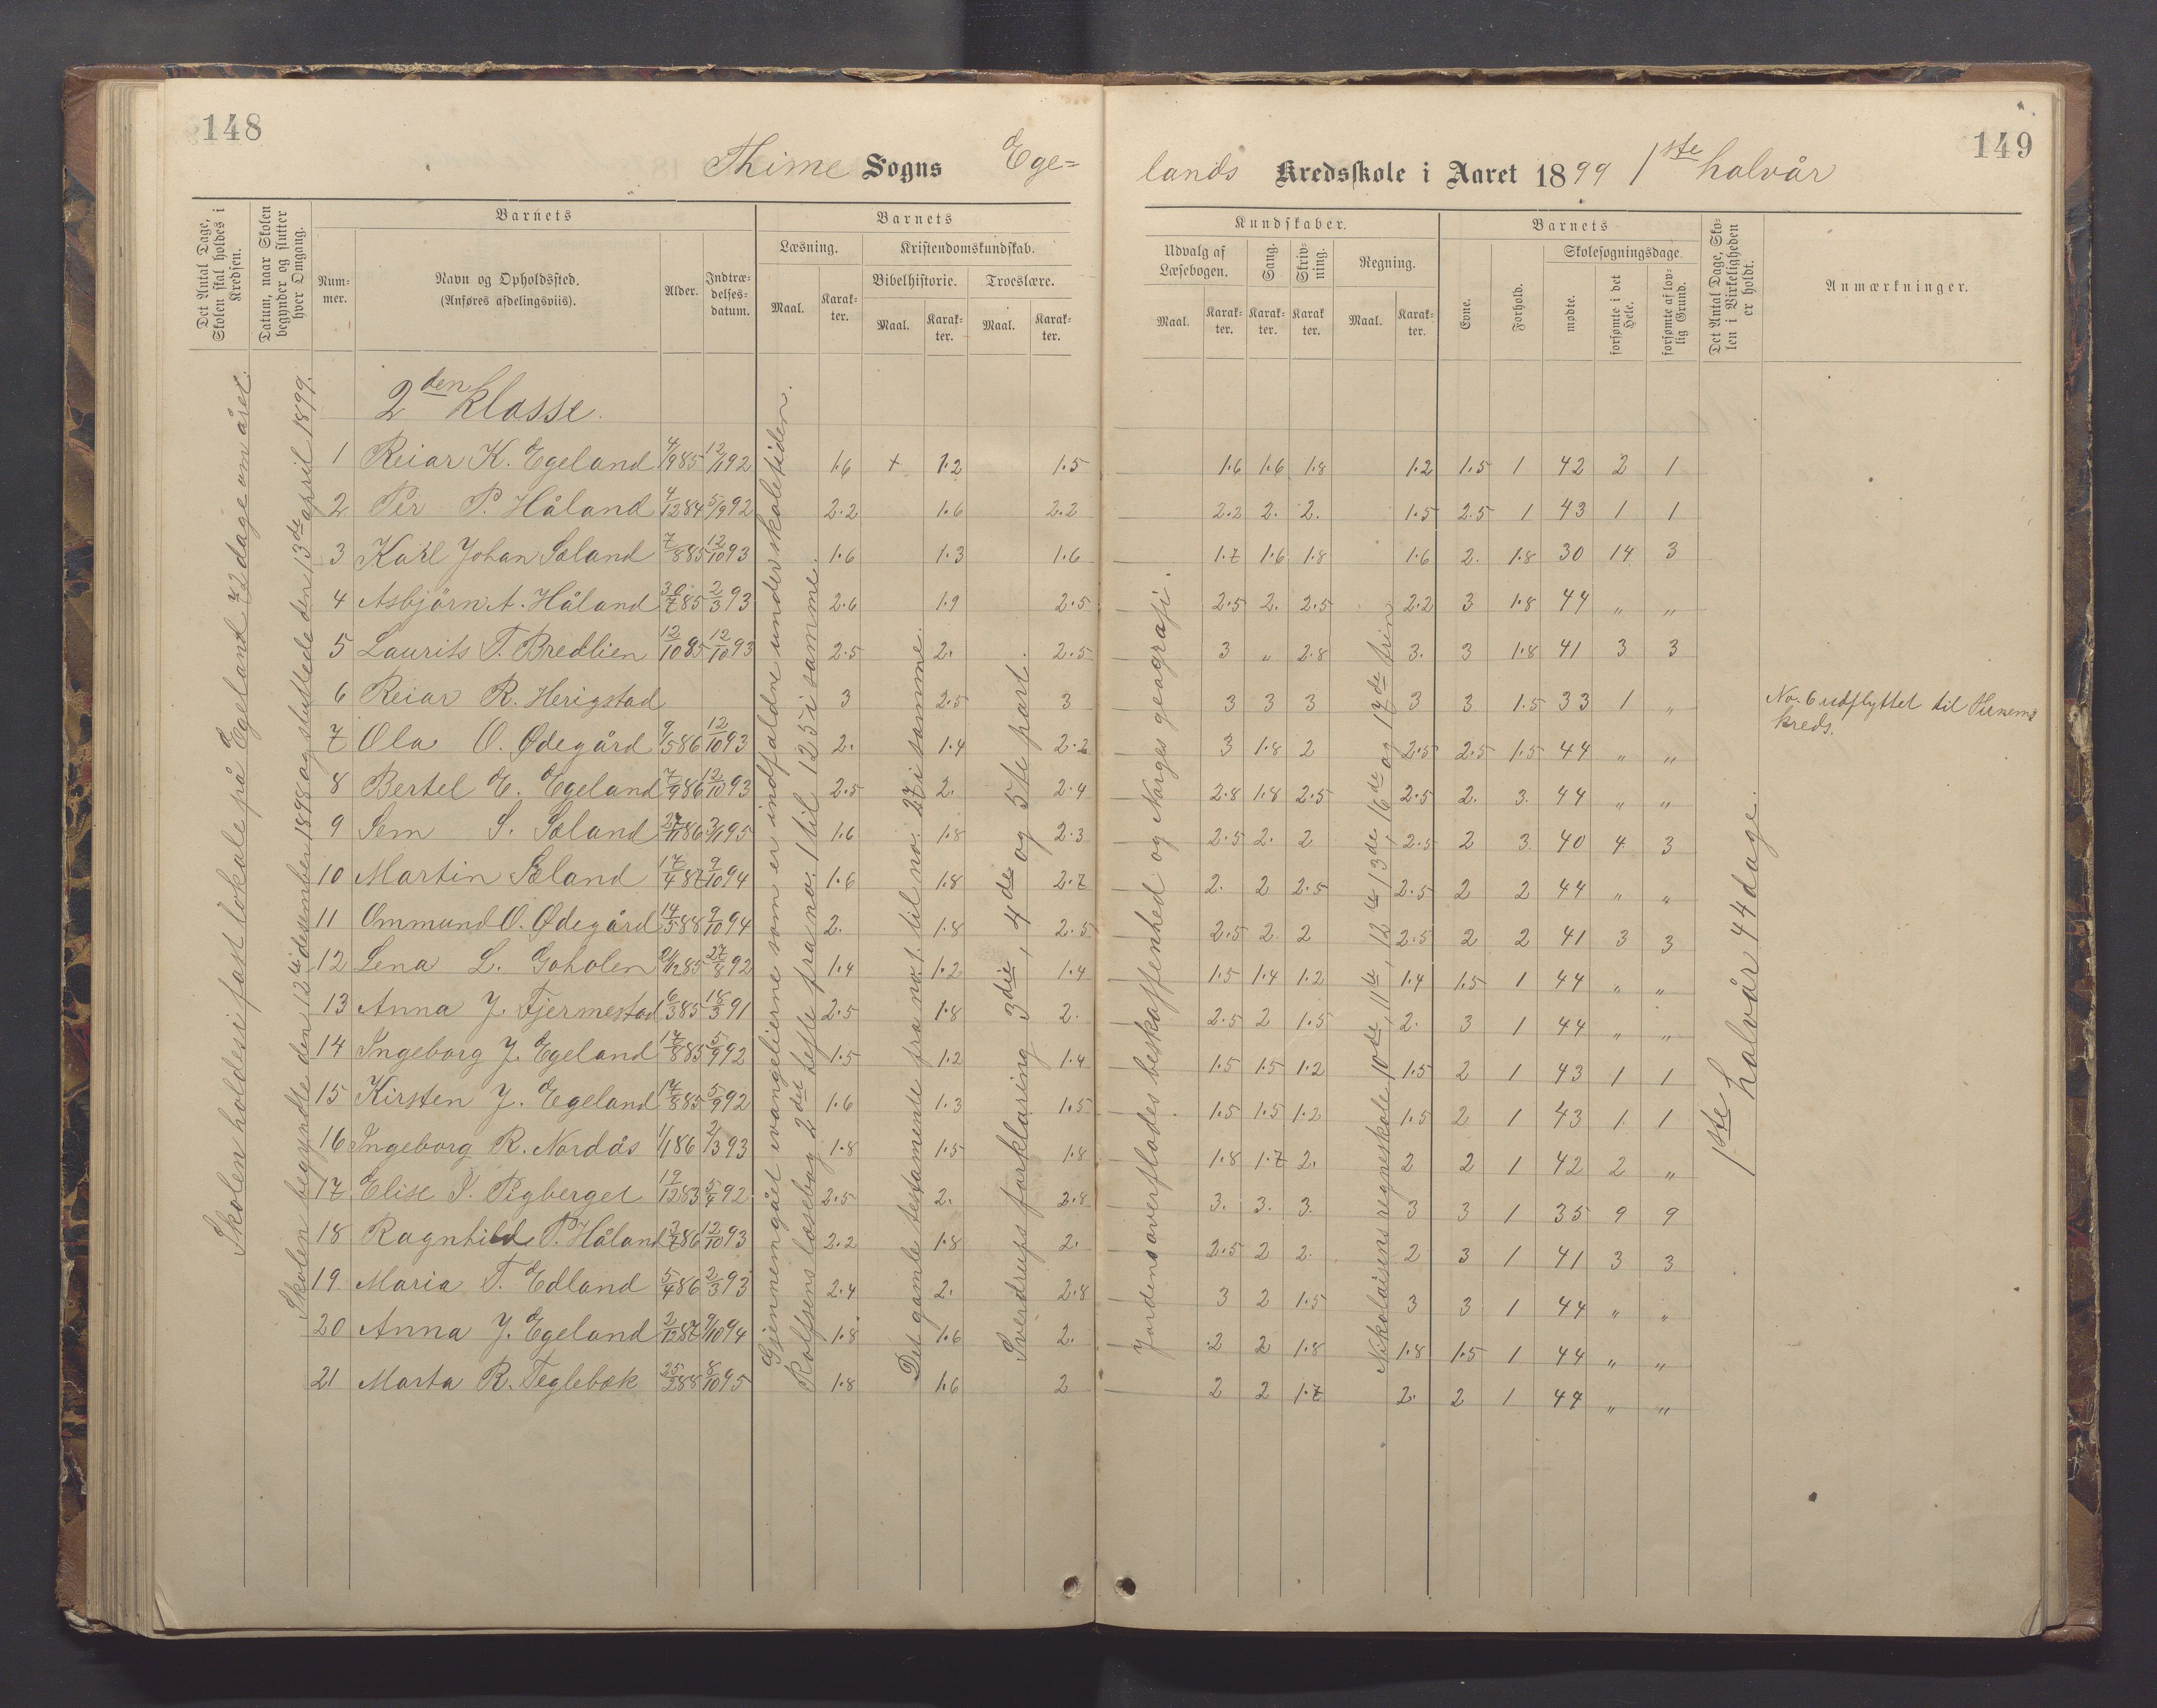 148
Thime Sogns Ege=
Det Antal Dage, Skolen skal holdes i Kredsen.
Datum, naar Skolen begynder og slutter hver Omgang.
Barnets
Nummer.
Navn og Opholdssted.
(Anføres afdelingsviis).
Alder.
Indtrædelsesdatum.
Barnets
Læsning.
Maal.
Karakter.
Kristendomskundskab.
Bibelhistorie.
Maal.
Karakter.
Troeslære.
Maal.
Karakter.
Skolen holdes i fast lokale på Egeland 72 dage om året.
Skolen begyndte den 12te desember 1898 og sluttede den 13de april 1899.
Gjennemgået evangelierne som er indfaldne under skoletiden.
Rolfsens læsebog 2det hefte fra no. 1 til 125 i samme.
Det gamle testamente fra no. 1 til no. 27 i samme.
Sverdrups forklaring 3die, 4de og 5te part.
2den klasse.
1 Reiar K. Egeland 4/9 85 12/11 92 1.6 + 1.2 1.5
2 Per P. Håland 4/12 84 5/9 92 2.2 1.6 2.2
3 Karl Johan Sæland 7/8 85 12/10 93 1.6 1.3 1.6
4 Asbjörn A. Håland 30/7 85 2/3 93 2.6 1.9 2.5
5 Laurits T. Bredlien 12/10 85 12/10 93 2.5 2. 2.5
6 Reiar R. Herigstad 3 2.5 3
7 Ola O. Ødegård 9/5 86 12/10 93 2. 1.4 2.2
8 Bertel E. Egeland 7/9 86 12/10 93 2.5 2. 2.4
9 Sem S. Sæland 27/11 86 3/11 95 1.6 1.8 2.3
10 Martin Sæland 17/4 87 9/10 94 1.6 1.8 2.7
11 Ommund O. Ødegård 14/5 88 9/10 94 2. 1.8 2.5
12 Lena L. Goholen 21/12 85 27/8 92 1.4 1.2 1.4
13 Anna J. Fjermestad 16/3 85 18/3 91 2.5 1.8 2.
14 Ingeborg J. Egeland 17/8 85 5/9 92 1.5 1.2 1.4
15 Kirsten J. Egeland 17/8 85 5/9 92 1.6 1.3 1.5
16 Ingeborg R. Nordås 1/1 86 2/3 93 1.8 1.5 1.8
17 Elise S. Rigberget 19/12 83 5/9 92 2.5 2. 2.8
18 Ragnhild P. Håland 3/7 86 12/10 93 2.2 1.8 2.
19 Maria T. Edland 5/4 86 2/3 93 2.4 2. 2.8
20 Anna J. Egeland 2/12 87 9/10 94 1.8 1.6 2.
21 Marta R. Teglebæk 25/2 88 8/10 95 1.8 1.6 2
149
lands Kredsskole i Aaret 1899 1ste halvår
Kundskaber.
Udvalg af Læsebogen.
Maal.
Karakter.
Sang.
Karakter.
Skrivning.
Karakter.
Regning.
Maal.
Karakter.
Barnets
Evne.
Forhold.
Skolesøgningsdage.
mødte.
forsømte i det Hele.
forsømte af lovlig Grund.
Det Antal Dage, Skolen i Virkeligheden er holdt.
Anmærkninger.
Jordensoverflades beskaffenhed og Norges geografi.
Nikolaisens regneskole 10de, 11te, 12te 13de 16de og 17de trin
1ste halvår 44 dage.
1.6 1.6 1.8 1.2 1.5 1 42 2 1
2.2 2. 2. 1.5 2.5 1 43 1 1
1.7 1.6 1.8 1.6 2. 1.8 30 14 3
2.5 2. 2.5 2.2 3 1.8 44 " "
3 " 2.8 3. 3 1.8 41 3 3
3 3 3 3 3 1.5 33 1 " No. 6 udflyttet til
kreds.
3 1.8 2 2.5 2.5 1.5 44 " "
2.8 1.8 2.5 2.5 2. 3. 44 " "
2.5 2. 2 2.5 2 3 40 4 3
2. 2 2.5 2.5 2 2 44 " "
2.5 2. 2 2.5 2 2 41 3 3
1.5 1.4 1.2 1.4 1.5 1 44 " "
2.5 2 1.5 2. 3 1 44 " "
1.5 1.5 1.2 1.5 2 1 43 1 1
1.5 1.5 1.2 1.5 2 1 43 1 1
1.8 1.7 2. 2 2 1 42 2 "
3. 3. 3. 3 3 1 35 9 9
2.5 2 2. 2 3 1 41 3 3
3 2 1.5 3 3 1 44 " "
2 2 1.8 1.8 1.5 1 44 " "
2 2 1.7 2. 2 1 44 " "